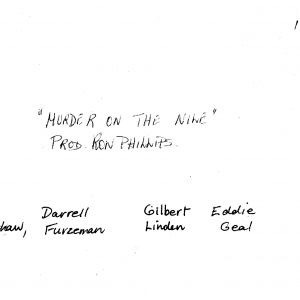 "MURDER ON THE NILE"
PROD. RON PHILLIPS.
Darrell Gilbert Eddie
haw, Furzeman Linden Geal